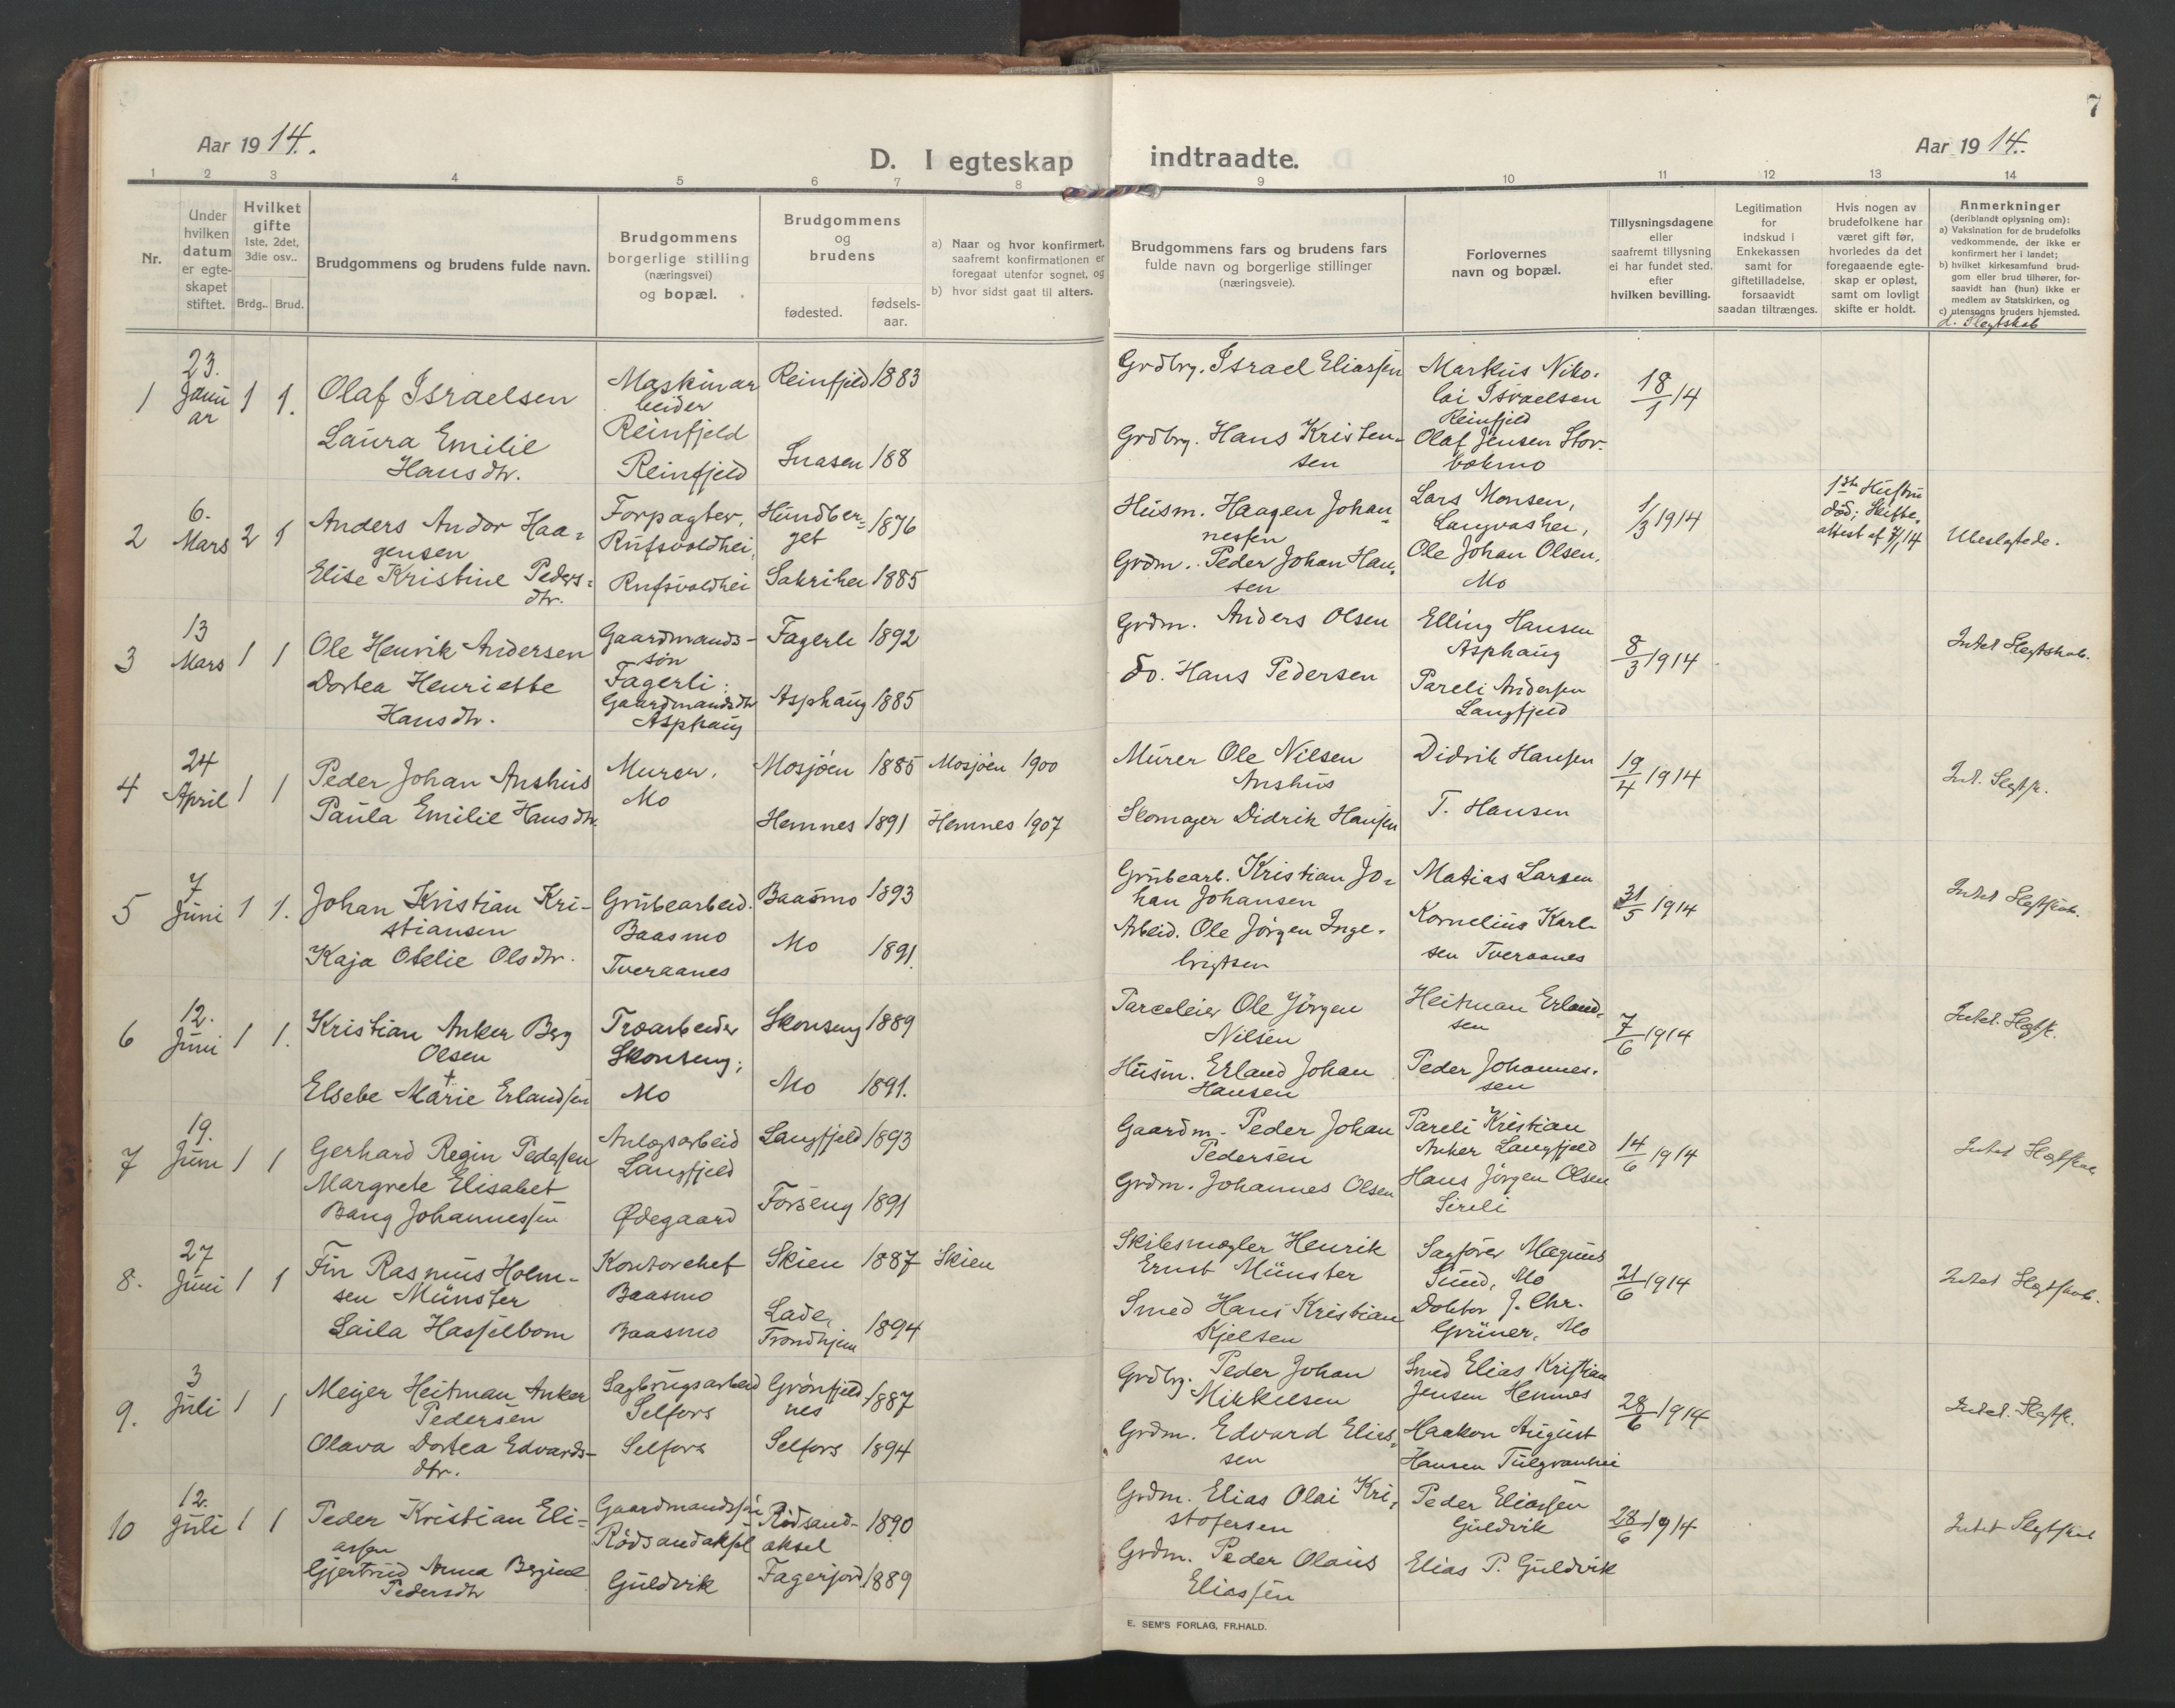 7
Aar 1914.
D. I egteskap indtraadte.
Aar 1914.
1 2 3 4 5 6 7 8 9 10 11 12 13 14
Nr.
Under hvilken datum er egte-skapet stiftet.
Hvilket gifte 1ste, 2det, 3die osv..
Brdg.. Brud.
Brudgommens og brudens fulde navn.
Brudgommens borgerlige stilling (næringsvei) og bopæl.
Brudgommens og brudens
fødested.
fødsels-aar.
a) Naar og hvor konfirmert, saafremt konfirmationen er foregaat utenfor sognet, og
b) hvor sidst gaat til alters.
Brudgommens fars og brudens fars fulde navn og borgerlige stillinger (næringsveie).
Forlovernes navn og bopæl.
Tillysningsdagene eller saafremt tillysning ei har fundet sted, efter hvilken bevilling.
Legitimation for indskud i Enkekassen samt for giftetilladelse, forsaavidt saadan tiltrænges.
Hvis nogen av brudefolkene har været gift før, hvorledes da det foregaaende egte-skap er opløst, samt om lovligt skifte er holdt.
Anmerkninger (deriblandt oplysning om):
a) Vaksination for de brudefolks vedkommende, der ikke er konfirmert her i landet;
b) hvilket kirkesamfund brud-gom eller brud tilhører, for-saavidt han (hun) ikke er medlem av Statskirken, og
c) utensogns bruders hjemsted.
d. Slegtskab
1
23.
Janu
ar
1 1.
Olaf Israelsen
Laura Emilie
Hansdtr.
Maskinar
beider
Reinfjeld
Reinfjeld
Reinfjeld 1883
Snasen 188
Grdbrg. Israel Eliassen
Grdbrg. Hans Kristen-
sen
Markus Niko-
lai Israelsen
Reinfjeld
Olaf Jensen Stor-
18/1 14
2
6.
Mars
2 1
Anders Andor Haa-
gensen
Elise Kristine Peders-
dtr.
Forpagter,
Rufsvoldhei,
Rufsvoldhei
Hundber-
get 1876
Sakrihei 1885
Husm. Haagen Johan-
nessen
Grdm. Peder Johan Han-
sen
Lars Monsen,
Langvashei,
Ole Johan Olsen,
Mo
1/3 1914
1ste Hustru
død; Skifte-
attest af 7/1 14
Ubeslegtede.
3
13
Mars
1 1
Ole Henrik Andersen
Dortea Henriette
Hansdtr.
Gaardmands-
søn
Fagerli;
Gaardmandsdtr
Asphaug
Fagerli 1892
Asphaug 1885
Grdm. Anders Olsen
Do. Hans Pedersen
Elling Hansen
Asphaug
Pareli Andersen
Langfjeld
8/3 1914
Intet Slegtskab.
4
24
April
1 1
Peder Johan Anshus
Paula Emilie Hansdtr.
Murer,
Mo
Mosjøen 1885 Mosjøen 1900
Hemnes 1891 Hemnes 1907
Murer Ole Nilsen
Anshus
Skomager Didrik Hansen
Didrik Hansen
T. Hansen
19/4 1914
Int. Slegtsk.
5
7
Juni
1 1.
Johan Kristian Kri-
stiansen
Kaja Otelie Olsdtr.
Grubearbeid.
Baasmo
Tveraanes
Baasmo 1893
Mo 1891.
Grubearb. Kristian Jo-
han Johansen
Arbeid. Ole Jørgen Inge-
brigtsen
Matias Larsen
Kornelius Karl-
sen Tveraanes
31/5 1914
Intet Slegtskab.
6
12.
Juni
1 1.
Kristian Anker Berg
Olsen
Elsebe Marie Erlandsen
Træarbeider
Skonseng;
Mo
Skonseng 1889
Mo 1891.
Parceleier Ole Jørgen
Nilsen
Husm. Erland Johan
Hansen
Heitman Erland-
sen
Peder Johannes-
sen
7/6 1914
Intet Slegtsk.
7
19.
Juni
1 1
Gerhard Regin Pedersen
Margrete Elisabet
Bang Johannessen
Anlægsarbeid
Langfjeld
Ødegaard
Langfjeld 1893
Forseng 1891
Gaardm. Peder Johan
Pedersen
Grdm. Johannes Olsen
Pareli Kristian
Anker Langfjeld
Hans Jørgen Olsen
Sirili
14/6 1914
Intet Slegtskab
8.
27
Juni
1 1
Fin Rasmus Holm-
sen Münster
Laila Hasselbom
Kontorchef
Baasmo
Baasmo
Skien 1887 Skien
Lade,
Trondhjem 1894
Skibsmægler Henrik
Ernst Münster
Smed Hans Kristian
Kjelsen
Sagfører Magnus
Sund, Mo
Doktor J. Chr.
Grüner, Mo
21/6 1914
Intet Slegtskab.
9.
3
Juli
1 1
Meijer Heitman Anker
Pedersen
Olava Dortea Edvards-
dtr.
Sagbrugsarbeid
Selfors
Selfors
Grønfjeld
nes 1887
Selfors 1894
Grdbrg. Peder Johan
Mikkelsen
Grdm. Edvard Elias-
sen
Smed Elias Kristian
Jensen Hemnes
Haakon August
Hansen
28/6 1914
Intet Slegtsk.
10
12.
Juli
1 1
Peder Kristian Eli-
assen
Gjertrud Anna Bergine
Pedersdtr
Gaardmandssøn
Rødsandaksel
Guldvik
Rødsand-
aksel 1890
Fagerjord 1889
Grdm. Elias Olai Kri-
stofersen
Grdm. Peder Olaus
Eliassen
Peder Eliassen
Guldvik
Elias P. Guldvik
28/6 1914
Intet Slegtskab
E. SEM'S FORLAG, FR.HALD.